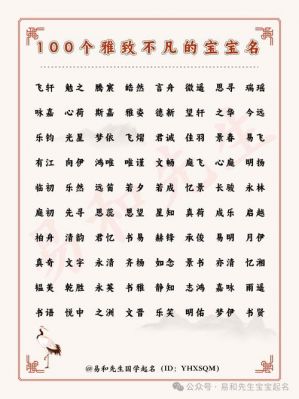 100个雅致不凡的宝宝名
飞轩 勉之 腾宸 皓然 言舟 徽遥 思寻 瑞瑶
咏嘉 心荷 斯嘉 雅姿 德新 望轩 之华 今远
乐钧 光星 梦依 飞熠 君诚 佳羽 景春 易飞
有江 向伊 鸿唯 唯谨 文畅 庭飞 心庭 明扬
临初 乐然 远笛 若夕 若成 忆景 长骏 永林
庭初 先寻 恩蕊 思望 星知 真荷 成乐 启越
柏舟 清韵 君忆 书易 赫绛 承俊 易明 月伊
真奇 文字 永清 齐杨 如念 景书 亦清 忆湘
韫芙 乾胜 永英 书雅 静知 志鸿 嘉咏 雨遥
书语 悦申 之洲 文晋 乐笑 明佑 梦伊 书贤
@易和先生国学起名（ID：YHXSQM）
公众号·易和先生宝宝起名